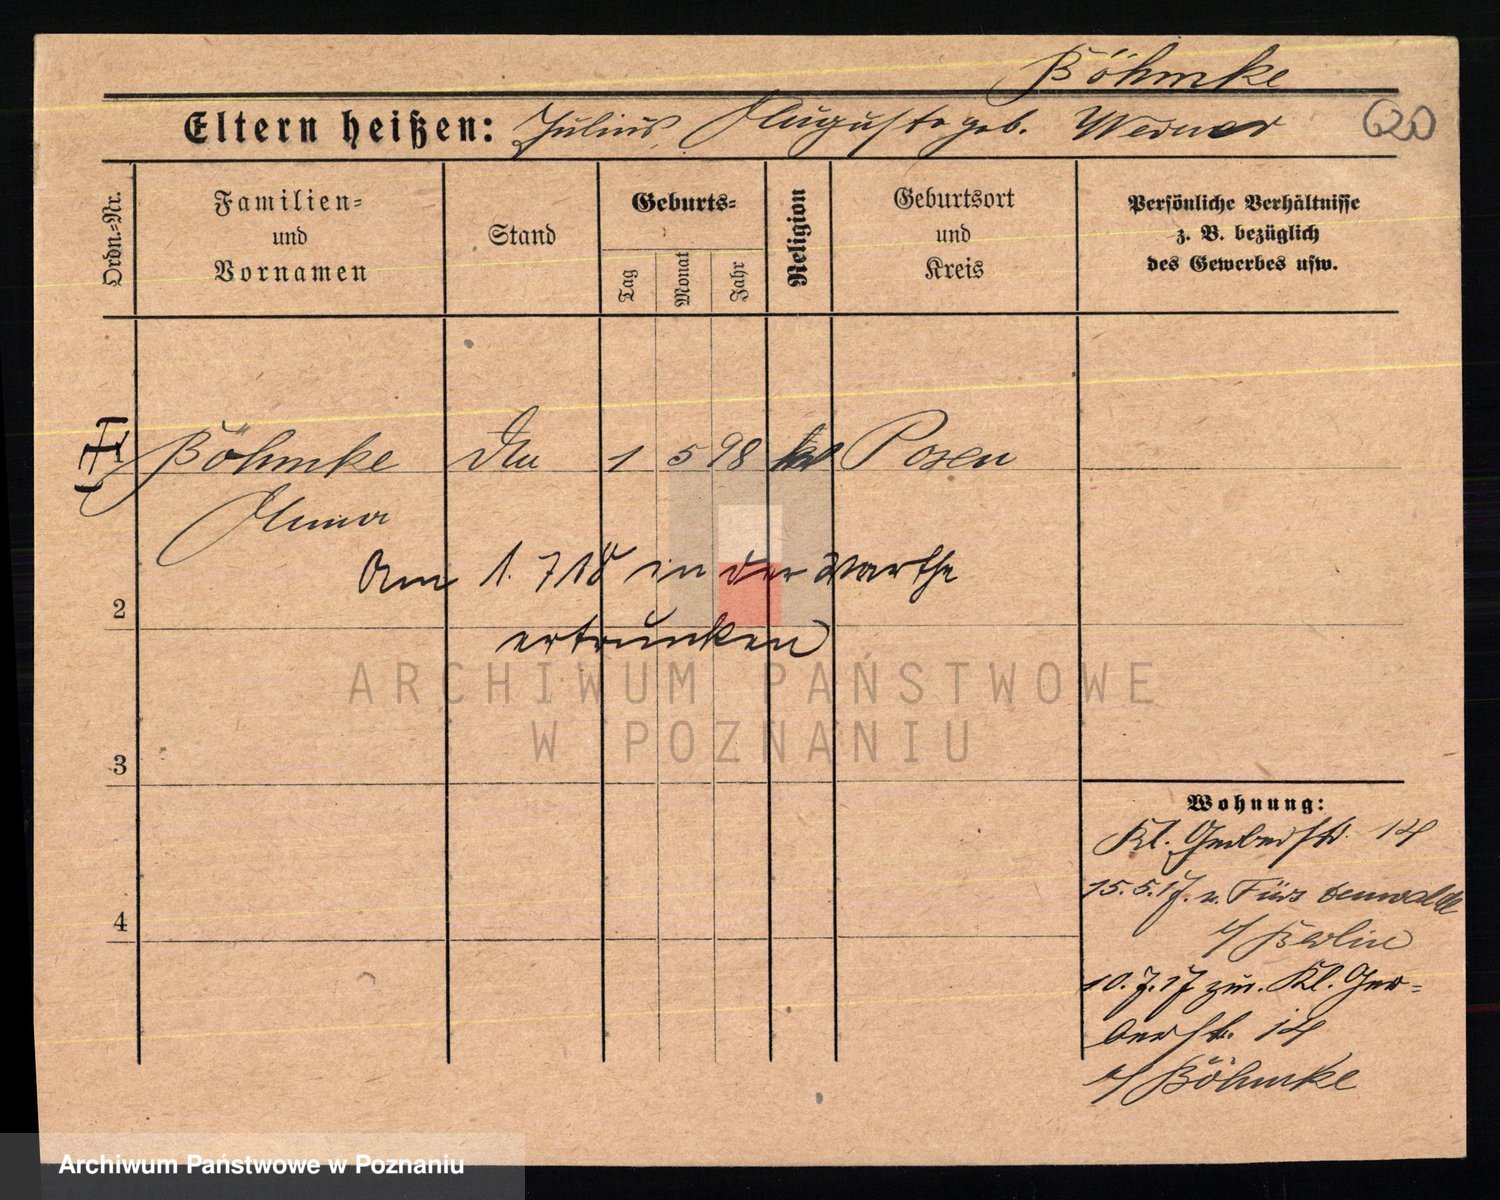 Böhmke
Eltern heißen: Julius, Auguste geb. Werner
620
Ordn.-Nr.
Familien-
und
Vornamen
Stand
Geburts-
Tag
Monat
Jahr
Religion
Geburtsort
und
Kreis
Persönliche Verhältnisse
z. B. bezüglich
des Gewerbes usw.
1 Böhmke 1 5 98 Posen
Am 1. 7 18 in der Warthe
2
ertrunken
ARCHIWUM PAŃSTWOWE
W POZNANIU
3
4
Wohnung:
Kl. Gerberstr. 14
15.5.17. n. Fürstenwalde
b/ Berlin
10.7.17 zur. Kl. Ger-
berstr. 14
b/ Böhmke
Archiwum Państwowe w Poznaniu